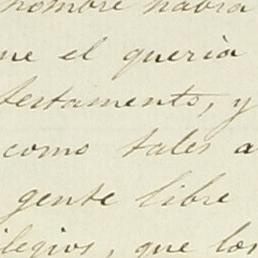 hombre habra
ne el queria
testamento, y
como tales a
gente libre
ilegios, que los